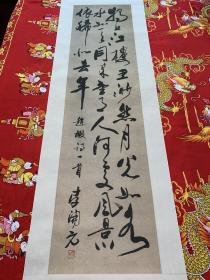 獨上江樓思渺然月光如水
水如天同來望月人何處風景
依稀似去年 趙嘏詩一首